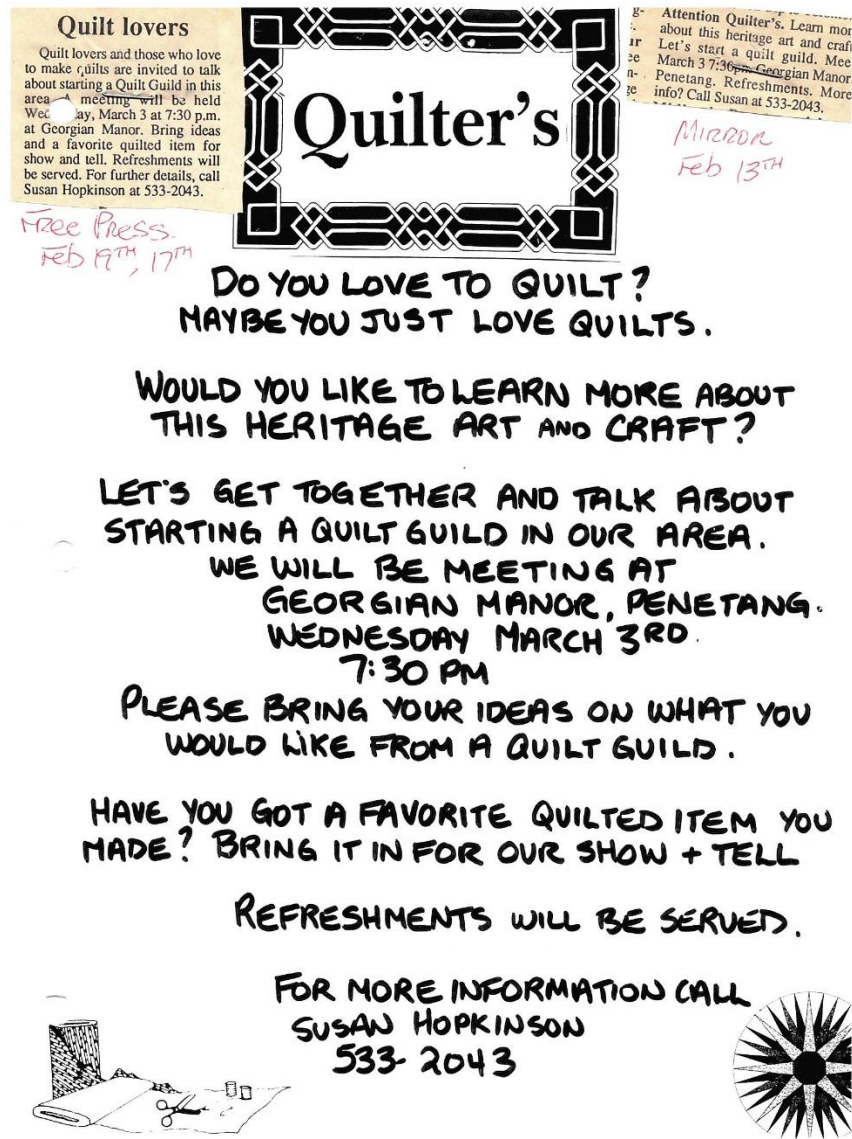 Quilt lovers
Quilt lovers and those who love
to make quilts are invited to talk
about starting a Quilt Guild in this
area meeting will be held
ay, March 3 at 7:30 p.m.
at Georgian Manor. Bring ideas
and a favorite quilted item for
show and tell. Refreshments will
be served. For further details, call
Susan Hopkinson at 533-2043.
Free Press.
Feb 19TH, 17TH
Quilter's
Attention Quilter's. Learn mor
about this heritage art and craft
Let's start a quilt guild. Mee
March 3 7:30pm Georgian Manor
Penetang. Refreshments. More
info? Call Susan at 533-2043.
MIRROR
Feb 13TH
DO YOU LOVE TO QUILT?
MAYBE YOU JUST LOVE QUILTS.
WOULD YOU LIKE TO LEARN MORE ABOUT
THIS HERITAGE ART AND CRAFT?
LET'S GET TOGETHER AND TALK ABOUT
STARTING A QUILT GUILD IN OUR AREA.
WE WILL BE MEETING AT
GEORGIAN MANOR, PENETANG.
WEDNESDAY MARCH 3RD.
7:30 PM
PLEASE BRING YOUR IDEAS ON WHAT YOU
WOULD LIKE FROM A QUILT GUILD.
HAVE YOU GOT A FAVORITE QUILTED ITEM YOU
MADE? BRING IT IN FOR OUR SHOW + TELL
REFRESHMENTS WILL BE SERVED.
FOR MORE INFORMATION CALL
SUSAN HOPKINSON
533-2043